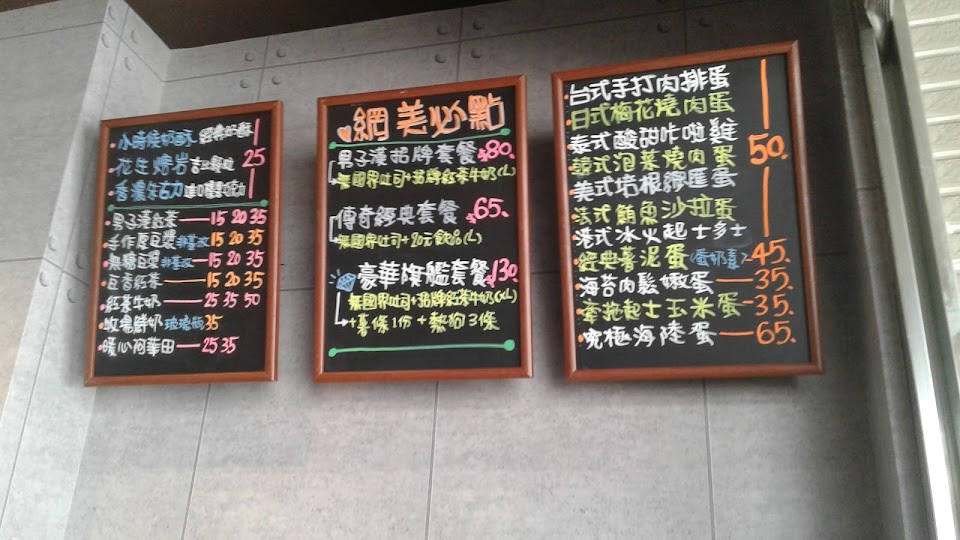 小時候奶酥 經典奶酥
花生熔岩 25
香濃朱古力
男子漢紅茶 15 20 35
手作原豆漿 非基改 15 20 35
無糖豆漿 非基改 15 20 35
豆香紅茶 15 20 35
紅茶牛奶 25 35 50
牧場鮮奶 玻璃瓶 35
暖心阿華田 25 35
網美必點
男子漢招牌套餐 $80.
無國界吐司+招牌紅茶牛奶(L)
傳奇經典套餐 $65.
無國界吐司+20元飲品(L)
豪華旗艦套餐 $130.
無國界吐司+招牌紅茶牛奶(XL)
+薯條1份+熱狗3條
台式手打肉排蛋
日式梅花燒肉蛋
泰式酸甜咔啦雞
韓式泡菜燒肉蛋 50.
美式培根繽匯蛋
法式鮪魚沙拉蛋
港式冰火起士多士
經典薯泥蛋(蛋奶素) 45.
海苔肉鬆嫩蛋 35.
牽拖起士玉米蛋 35.
究極海陸蛋 65.